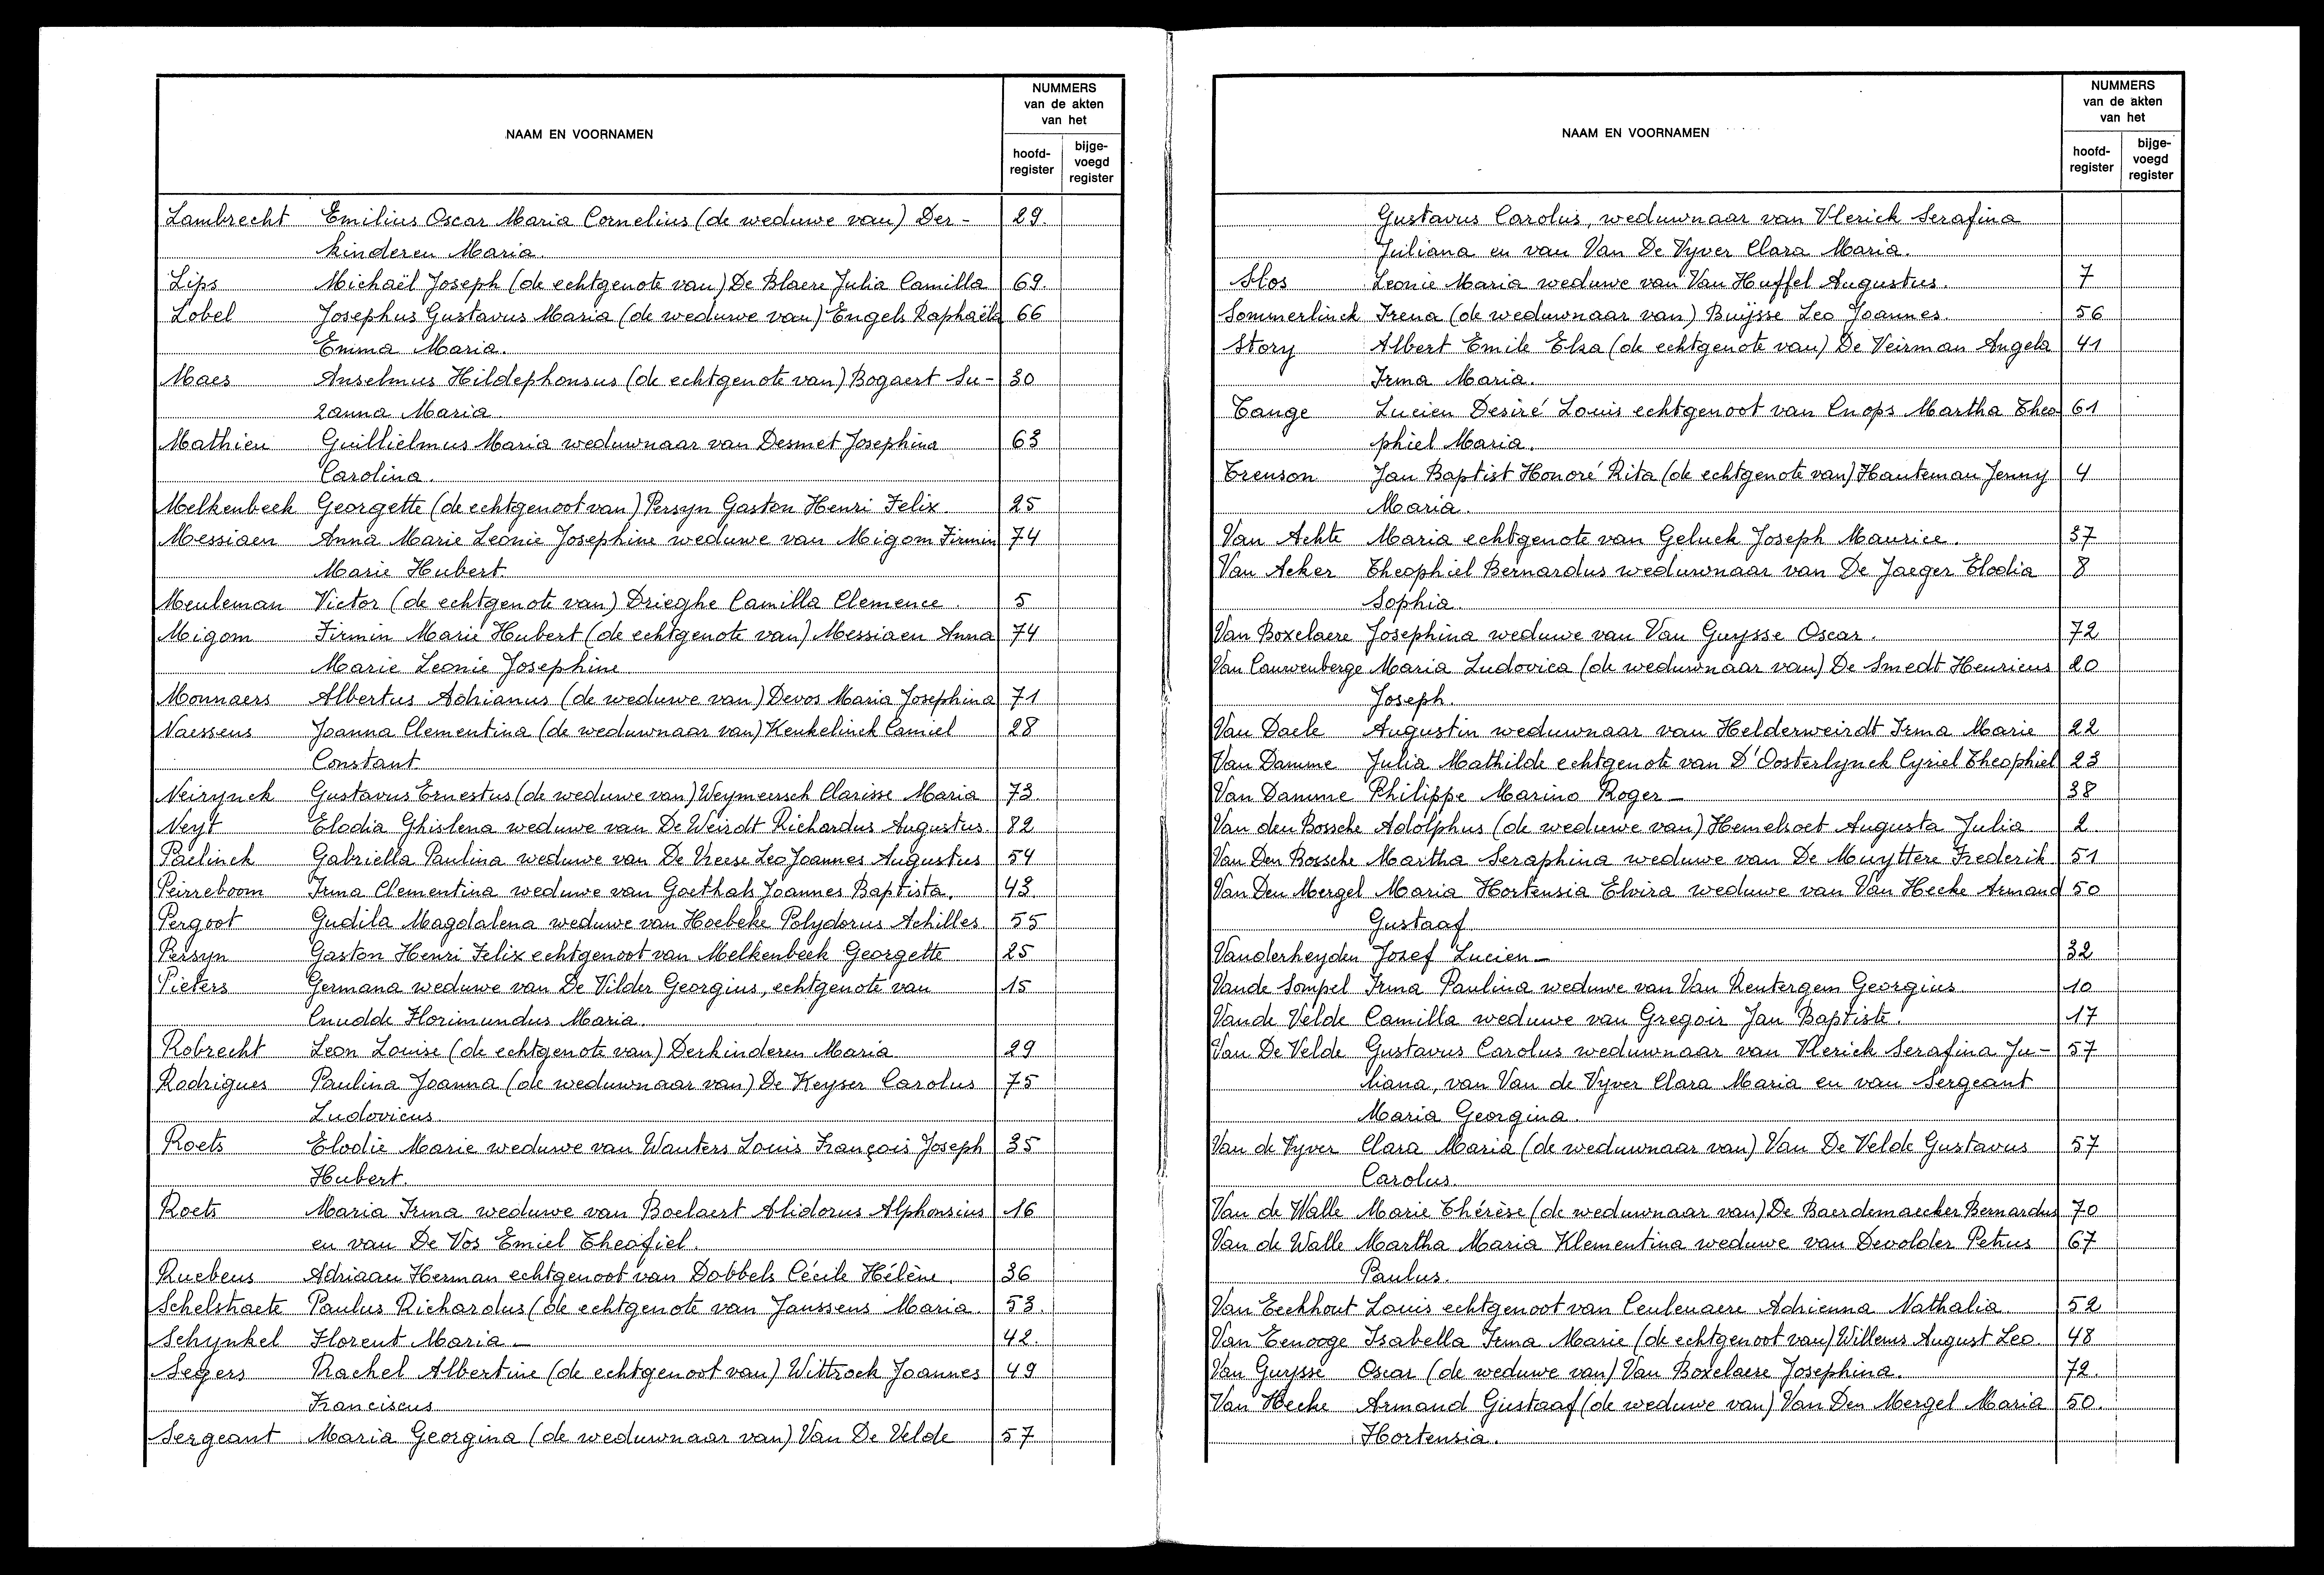 NAAM EN VOORNAMEN
NUMMERS
van de akten
van het
hoofd-
register
bijge-
voegd
register
Lambrecht Emilius Oscar Maria Cornelius (de weduwe van) Der- 29.
kinderen Maria.
Lips Michaël Joseph (de echtgenote van) De Blaere Julia Camilla 69.
Lobel Josephus Gustavus Maria (de weduwe van) Engels Raphaëla 66
Emma Maria.
Maes Anselmus Hildephonsus (de echtgenote van) Bogaert Su- 30
zanna Maria
Mathieu Guillielmus Maria weduwnaar van Desmet Josephina 63
Carolina.
Melkenbeek Georgette (de echtgenoot van) Persyn Gaston Henri Felix. 25
Messiaen Anna Marie Leonie Josephine weduwe van Migom Firmin 74
Marie Hubert.
Meuleman Victor (de echtgenote van) Drieghe Camilla Clemence. 5
Migom Firmin Marie Hubert (de echtgenote van) Messiaen Anna 74
Marie Leonie Josephine
Monnaers Albertus Adrianus (de weduwe van) Devos Maria Josephina 71
Naessens Joanna Clementina (de weduwnaar van) Keukelinck Camiel 28
Constant
Neirynck Gustavus Ernestus (de weduwe van) Weymeersch Clarisse Maria 73.
Neyt Elodia Ghislena weduwe van De Weirdt Richardus Augustus. 82
Paelinck Gabriella Paulina weduwe van De Vreese Leo Joannes Augustus 54
Peirreboom Irma Clementina weduwe van Goethals Joannes Baptista. 43.
Pergoot Gudila Magdalena weduwe van Hoebeke Polydorus Achilles. 55
Persyn Gaston Henri Felix echtgenoot van Melkenbeek Georgette 25
Pieters Germana weduwe van De Vilder Georgius, echtgenote van 15
Cnudde Florimundus Maria.
Robrecht Leon Louise (de echtgenote van) Derkinderen Maria 29
Rodrigues Paulina Joanna (de weduwnaar van) De Keyser Carolus 75
Ludovicus
Roets Elodie Marie weduwe van Wauters Louis François Joseph 35
Hubert.
Roets Maria Irma weduwe van Boelaert Alidorus Alphonsius 16
en van De Vos Emiel Theofiel.
Ruebens Adriaan Herman echtgenoot van Dobbels Cécile Hélène. 36
Schelstraete Paulus Richardus (de echtgenote van Janssens Maria. 53.
Schynkel Florent Maria - 42.
Segers Rachel Albertine (de echtgenoot van) Wittrock Joannes 49
Franciscus
Sergeant Maria Georgina (de weduwnaar van) Van De Velde 57
NAAM EN VOORNAMEN
NUMMERS
van de akten
van het
hoofd-
register
bijge-
voegd
register
Gustavus Carolus, weduwnaar van Vlerick Serafina
Juliana en van Van De Vyver Clara Maria.
Slos Leonie Maria weduwe van Van Huffel Augustus. 7
Sommerlinck Irena (de weduwnaar van) Buÿsse Leo Joannes. 56
Story Albert Emile Elsa (de echtgenote van) De Veirman Angela 41
Irma Maria.
Tange Lucien Desiré Louis echtgenoot van Cnops Martha Theo 61
phiel Maria.
Trenson Jan Baptist Honoré Rita (de echtgenote van) Hauteman Jenny 4
Maria.
Van Achte Maria echtgenote van Geluck Joseph Maurice. 37
Van Acker Theophiel Bernardus weduwnaar van De Jaeger Elodia 8
Sophia.
Van Boxelaere Josephina weduwe van Van Guysse Oscar. 72
Van Cauwenberge Maria Ludovica (de weduwnaar van) De Smedt Henricus 20
Joseph.
Van Daele Augustin weduwnaar van Helderweirdt Irma Marie 22
Van Damme Julia Mathilde echtgenote van D'Oosterlynck Cyriel Theophiel 23
Van Damme Philippe Marino Roger - 38
Van den Bossche Adolphus (de weduwe van) Hemelsoet Augusta Julia 2.
Van Den Bossche Martha Seraphina weduwe van De Muyttere Frederik. 51
Van Den Mergel Maria Hortensia Elvira weduwe van Van Hecke Armand 50
Gustaaf
Vanderheyden Jozef Lucien - 32
Vande Sompel Irma Paulina weduwe van Van Rentergem Georgius 10
Vande Velde Camilla weduwe van Gregoir Jan Baptiste. 17
Van De Velde Gustavus Carolus weduwnaar van Vlerick Serafina Ju- 57
liana, van Van de Vyver Clara Maria en van Sergeant
Maria Georgina.
Van de Vyver Clara Maria (de weduwnaar van) Van De Velde Gustavus 57
Carolus.
Van de Walle Marie Thérèse (de weduwnaar van) De Baerdemaecker Bernardus 70
Van de Walle Martha Maria Klementina weduwe van Devolder Petrus 67
Paulus.
Van Eeckhout Louis echtgenoot van Ceulenaere Adrienna Nathalia 52
Van Eenooge Isabella Irma Marie (de echtgenoot van) Willems August Leo. 48
Van Guysse Oscar (de weduwe van) Van Boxelaere Josephina. 72.
Van Hecke Armand Gustaaf (de weduwe van) Van Den Mergel Maria 50.
Hortensia.